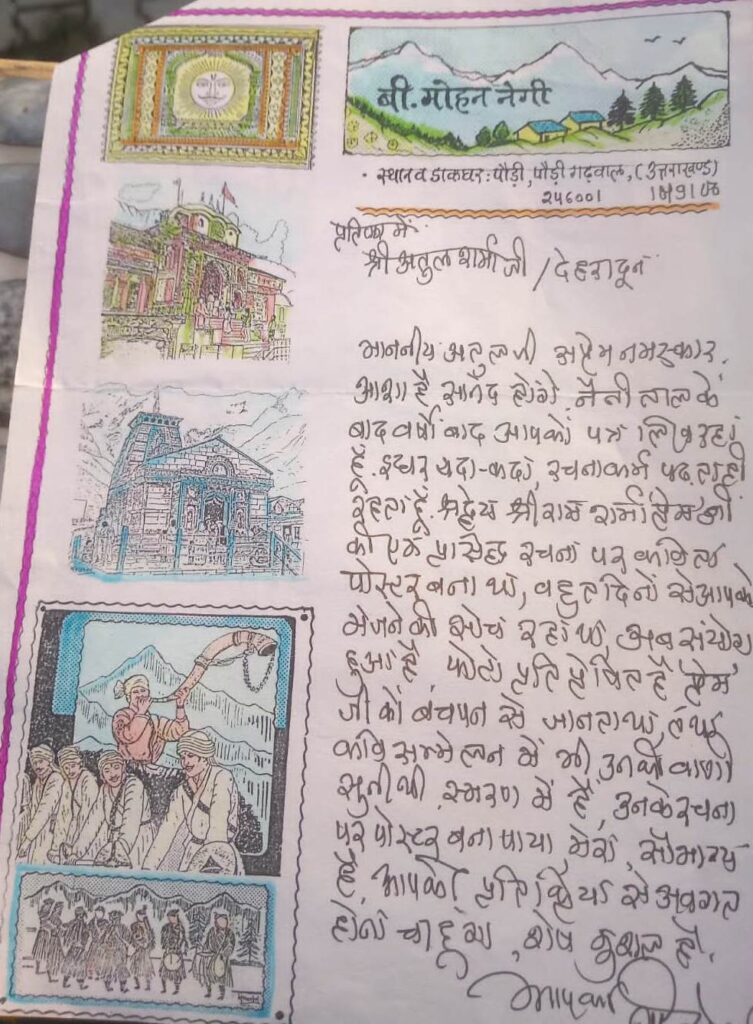 बी. मोहन नेगी
• स्थान व डाकघर: पौड़ी, पौड़ी गढ़वाल, (उत्तराखण्ड)
२४६००१
में.
श्री अतुल शर्मा जी / देहरादून
माननीय अतुल जी सप्रेम नमस्कार.
आशा है सानंद होंगे. नैनीताल के
बाद वर्षों बाद आपको पत्र लिख रहा
हूँ. इधर यदा-कदा, रचनाकर्म पढ़ता ही
रहता हूँ. श्रद्धेय श्रीराम शर्मा प्रेम जी
की एक प्रसिद्ध रचना पर कविता
पोस्टर बना था, बहुत दिनों से आपको
भेजने की सोच रहा था, अब संयोग
हुआ है. फोटो प्रति प्रेषित है प्रेम
जी को बचपन से जानता था,
कवि सम्मेलन में भी उनकी वाणी
सुनी थी. स्मरण में है, उनके रचना
पर पोस्टर बना पाया, मेरा, सौभाग्य
है. आपकी प्रतिक्रिया से अवगत
होना चाहूंगा, शेष कुशल है.
आपका